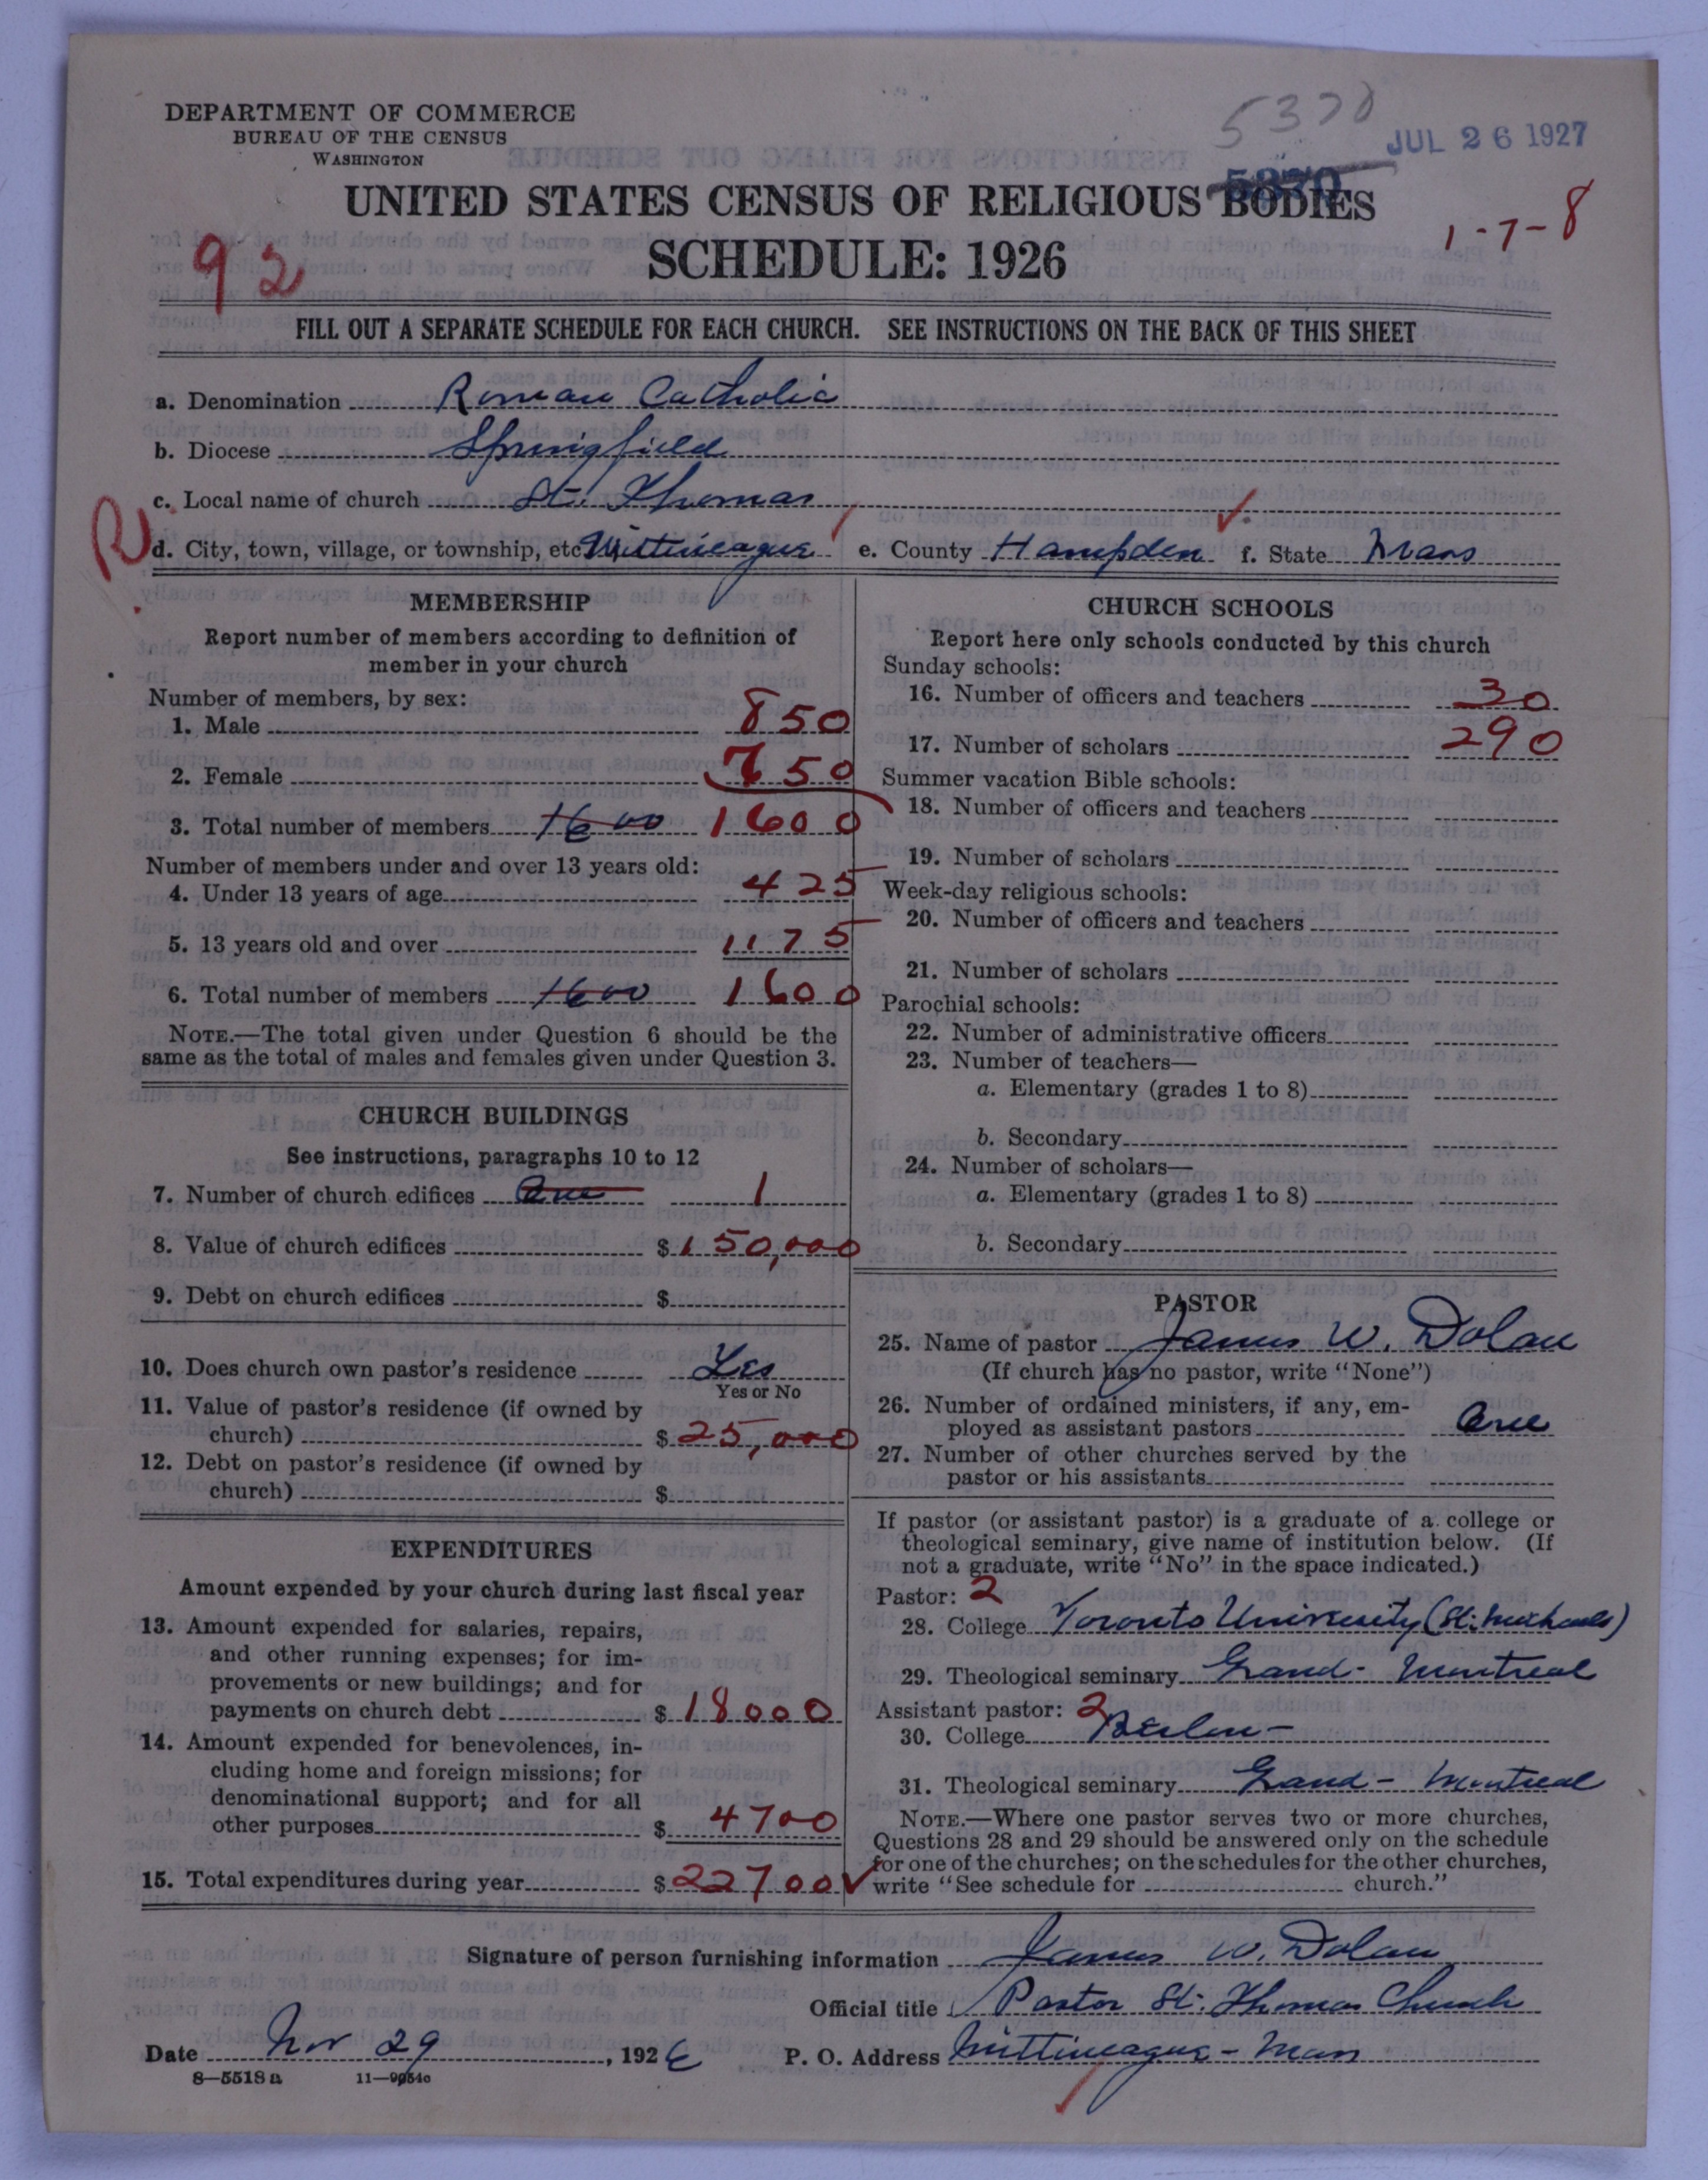 5370
JUL 26 1927
DEPARTMENT OF COMMERCE
BUREAU OF THE CENSUS
WASHINGTON
5370
UNITED STATES CENSUS OF RELIGIOUS BODIES
SCHEDULE: 1926
1-7-8
92
FILL OUT A SEPARATE SCHEDULE FOR EACH CHURCH. SEE INSTRUCTIONS ON THE BACK OF THIS SHEET
a. Denomination Roman Catholic
b. Diocese Springfield
c. Local name of church St. Thomas
R
d. City, town, village, or township, etc. Mittineague e. County Hampden f. State Mass
MEMBERSHIP
Report number of members according to definition of
member in your church
Number of members, by sex:
1. Male 850
2. Female 750
3. Total number of members 1600 1600
Number of members under and over 13 years old:
4. Under 13 years of age 425
5. 13 years old and over 1175
6. Total number of members 1600 1600
NOTE.—The total given under Question 6 should be the
same as the total of males and females given under Question 3.
CHURCH BUILDINGS
See instructions, paragraphs 10 to 12
7. Number of church edifices One 1
8. Value of church edifices $ 150,000
9. Debt on church edifices $
10. Does church own pastor's residence Yes
Yes or No
11. Value of pastor's residence (if owned by
church) $ 25,000
12. Debt on pastor's residence (if owned by
church) $
EXPENDITURES
Amount expended by your church during last fiscal year
13. Amount expended for salaries, repairs,
and other running expenses; for im-
provements or new buildings; and for
payments on church debt $ 18000
14. Amount expended for benevolences, in-
cluding home and foreign missions; for
denominational support; and for all
other purposes $ 4700
15. Total expenditures during year $ 22700
CHURCH SCHOOLS
Report here only schools conducted by this church
Sunday schools:
16. Number of officers and teachers 30
17. Number of scholars 290
Summer vacation Bible schools:
18. Number of officers and teachers
19. Number of scholars
Week-day religious schools:
20. Number of officers and teachers
21. Number of scholars
Parochial schools:
22. Number of administrative officers
23. Number of teachers—
a. Elementary (grades 1 to 8)
b. Secondary
24. Number of scholars—
a. Elementary (grades 1 to 8)
b. Secondary
PASTOR
25. Name of pastor James W. Dolan
(If church has no pastor, write "None")
26. Number of ordained ministers, if any, em-
ployed as assistant pastors One
27. Number of other churches served by the
pastor or his assistants
If pastor (or assistant pastor) is a graduate of a college or
theological seminary, give name of institution below. (If
not a graduate, write "No" in the space indicated.)
Pastor: 2
28. College Toronto University (St. Michaels)
29. Theological seminary Grand - Montreal
Assistant pastor: 2
30. College
31. Theological seminary Grand - Montreal
NOTE.—Where one pastor serves two or more churches,
Questions 28 and 29 should be answered only on the schedule
for one of the churches; on the schedules for the other churches,
write "See schedule for church."
Signature of person furnishing information James W. Dolan
Official title Pastor St. Thomas Church
Date Nov 29, 1926 P. O. Address Mittineague - Mass
8—5518a 11—9054c